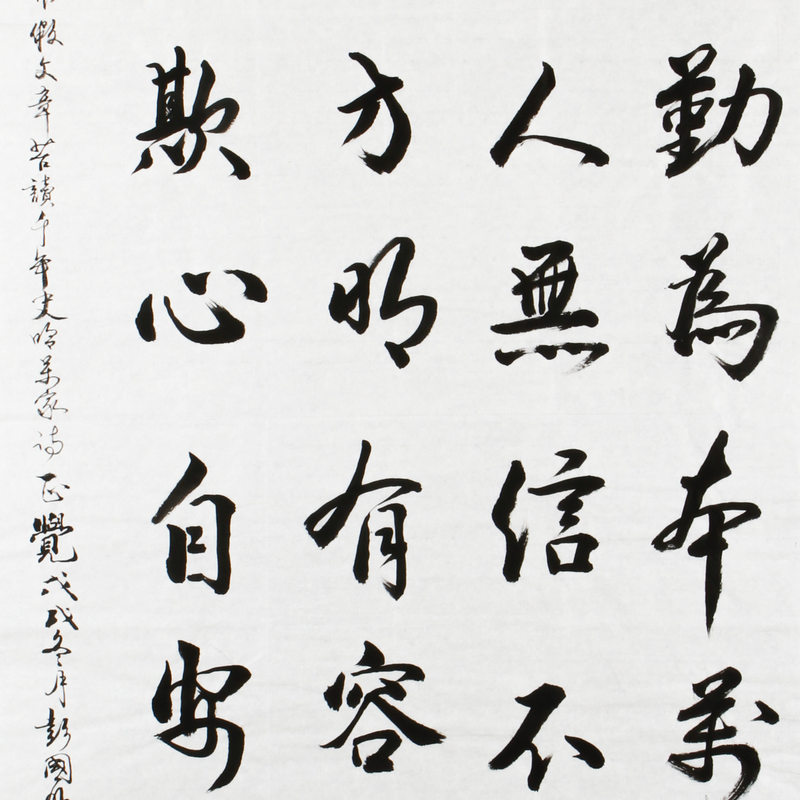 勤為本萬
人無信不
方明有容
欺心自安
文章苦讀千年史吟萬家詩 正覺 戊戌冬月彭國